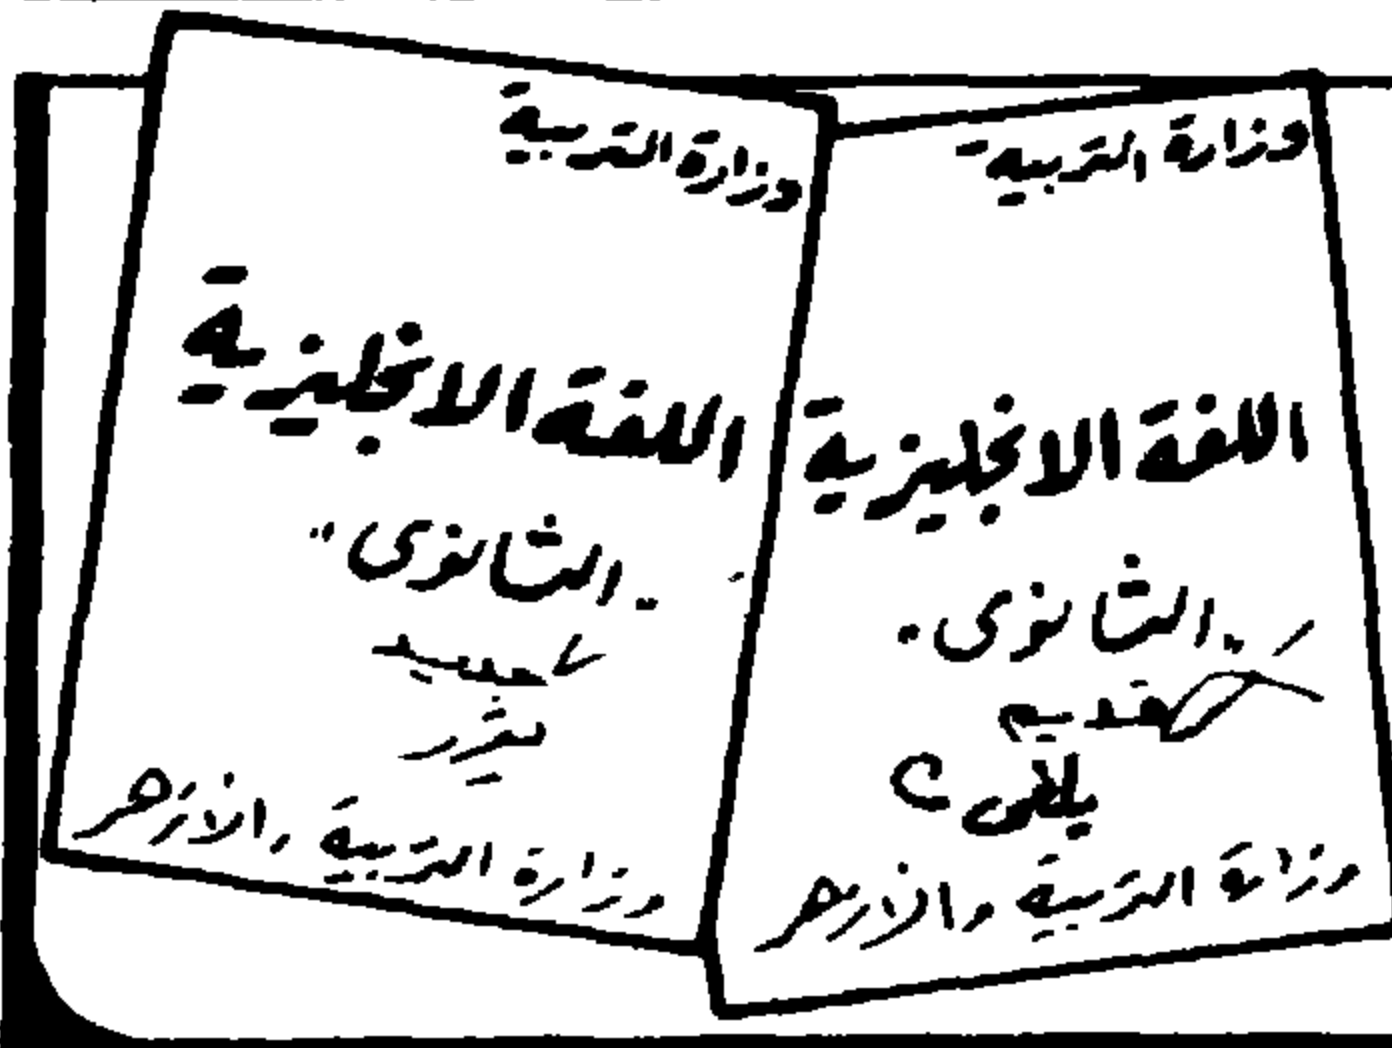 وزارة التربية
اللغة الانجليزية
"الثانوى"
قديم
يلغى
وزارة التربية والأزهر
وزارة التربية
اللغة الانجليزية
"الثانوى"
جديد
يقرر
وزارة التربية والأزهر